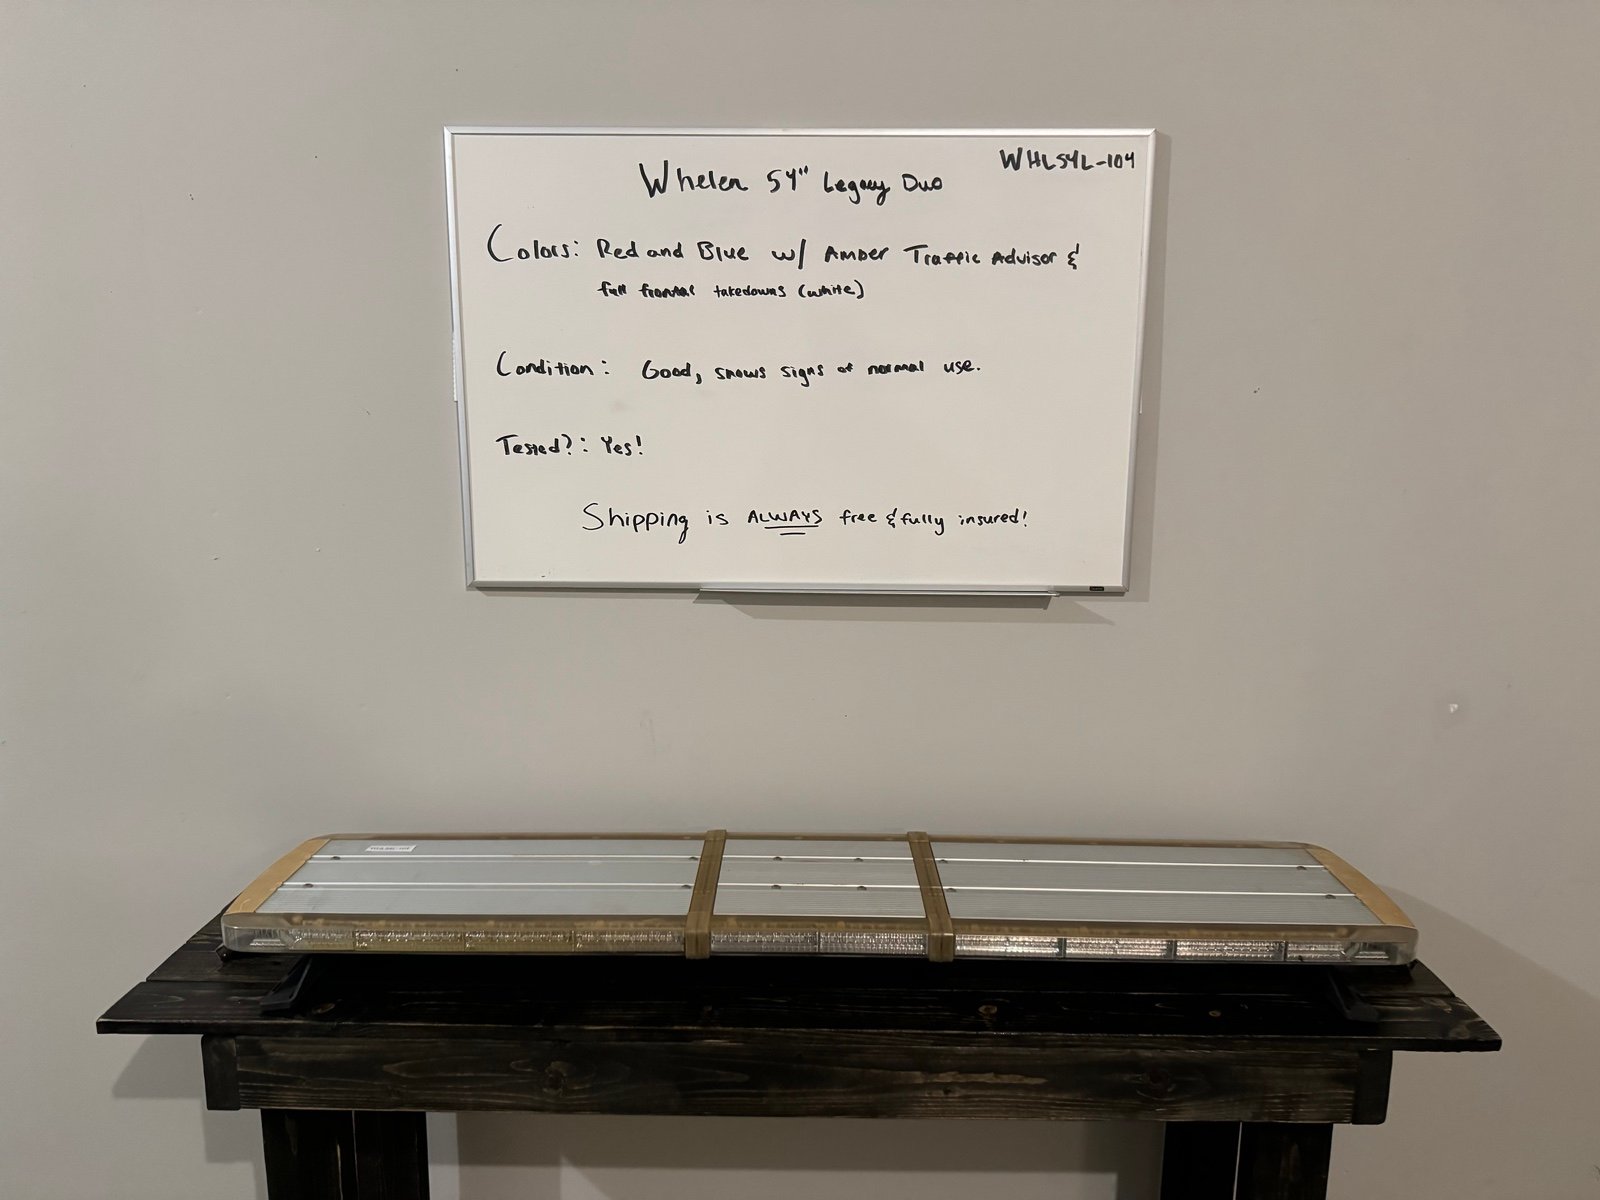 WHL54L-104
Whelen 54" Legacy Duo
Colors: Red and Blue w/ Amber Traffic Advisor &
full frontal takedowns (white)
Condition: Good, shows signs of normal use.
Tested?: Yes!
Shipping is ALWAYS free & fully insured!